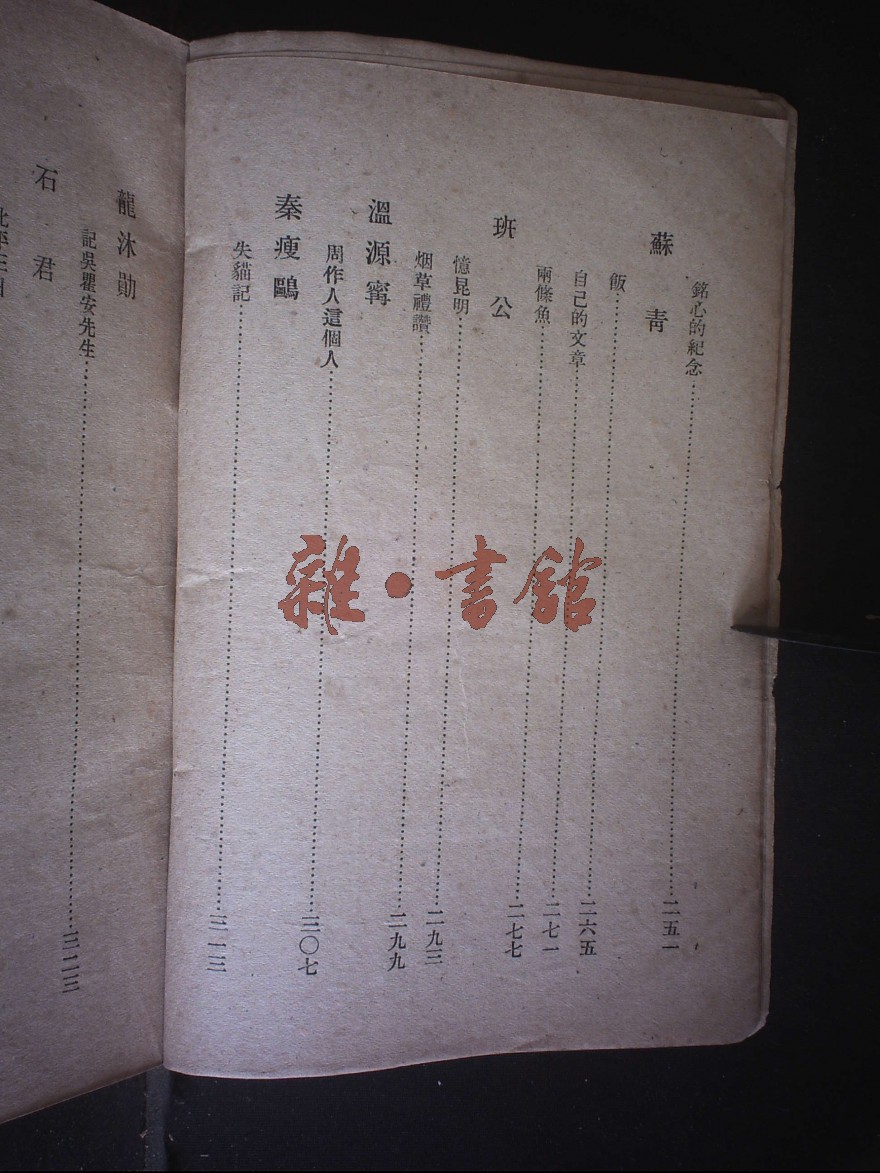 銘心的紀念……二五一
蘇青
飯……二六五
自己的文章……二七一
兩條魚……二七七
班公
憶昆明……二九三
烟草禮讚……二九九
溫源寗
周作人這個人……三〇七
秦瘦鷗
失貓記……三一三
龍沐勛
記吳瞿安先生……三二三
石君
雜·書館